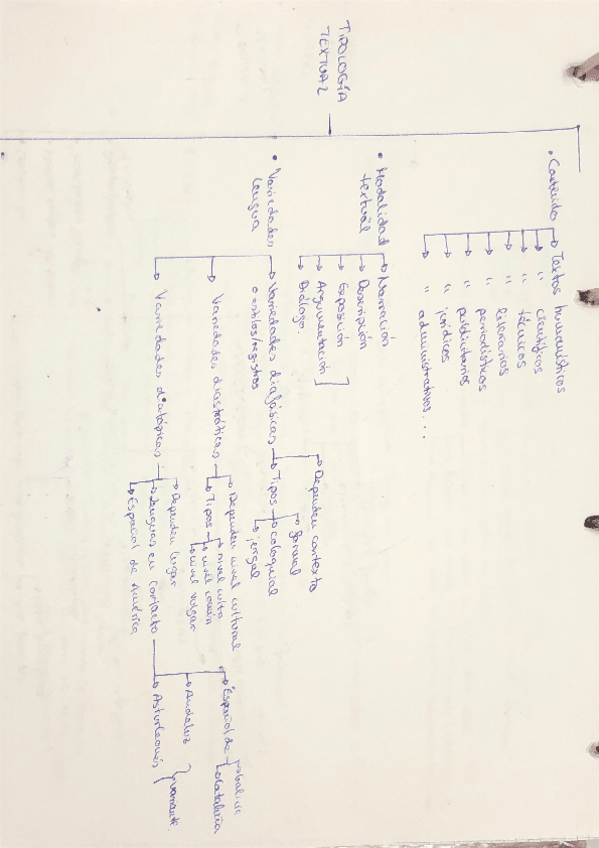 TIPOLOGÍA
TEXTUAL
• Contenido
Textos humanísticos
" científicos
" técnicos
" literarios
" periodísticos
" publicitarios
" jurídicos
" administrativos...
• Modalidad
textual
Narración
Descripción
Exposición
Argumentación
Diálogo.
• Variedades
lengua
Variedades diafásicas
o estilos/registros
Dependen contexto
Tipos
formal
coloquial
jergal
Variedades diastráticas
Dependen nivel cultural
Tipos
nivel culto
nivel común
nivel vulgar
Variedades diatópicas
Dependen lugar
Lenguas en contacto
Español de América
Español de
Cataluña
Andaluz
Asturleonés
variante.